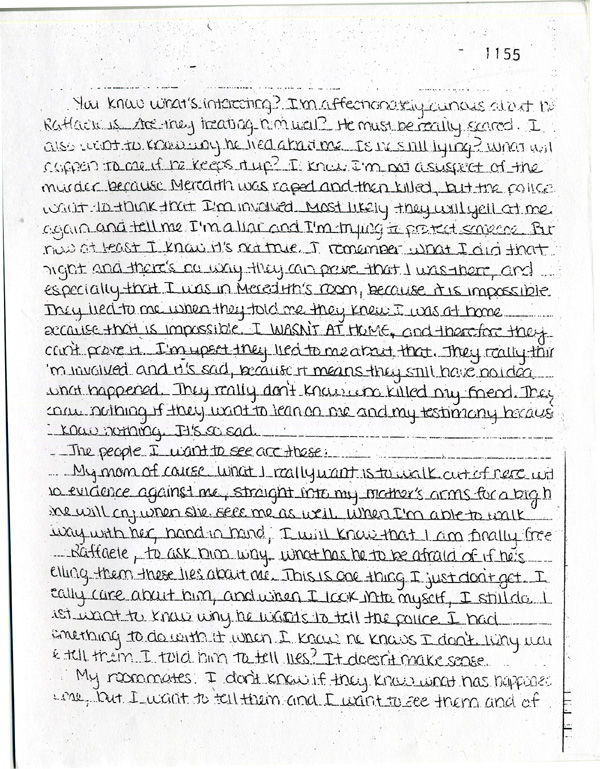 1155
You know what's interesting? I'm affectionately curious about h
Raffaele is. Are they treating him well? He must be really scared. I
also want to know why he lied about me. Is he still lying? What wil
happen to me if he keeps it up? I know I'm not a suspect of the
murder because Meredith was raped and then killed, but the police
want to think that I'm involved. Most likely they will yell at me
again and tell me I'm a liar and I'm trying to protect someone. But
now at least I know it's not true. I remember what I did that
night and there's no way they can prove that I was there, and
especially that I was in Meredith's room, because it is impossible.
They lied to me when they told me they knew I was at home
because that is impossible. I WASN'T AT HOME, and therefore they
can't prove it. I'm upset they lied to me about that. They really thin
'm involved and it's sad, because it means they still have no idea
what happened. They really don't know who killed my friend. They
know nothing if they want to lean on me and my testimony because
know nothing. It's so sad.
The people I want to see are these:
My mom of course. What I really want is to walk out of here wit
no evidence against me, straight into my mother's arms for a big h
he will cry when she sees me as well. When I'm able to walk
way with her, hand in hand, I will know that I am finally free
Raffaele, to ask him why. What has he to be afraid of if he's
elling them these lies about me. This is one thing I just don't get. I
eally care about him, and when I look into myself, I still do. I
ust want to know why he wants to tell the police I had
omething to do with it when I know he knows I don't. Why wou
e tell them I told him to tell lies? It doesn't make sense.
My roommates. I don't know if they know what has happened
me, but I want to tell them and I want to see them and of